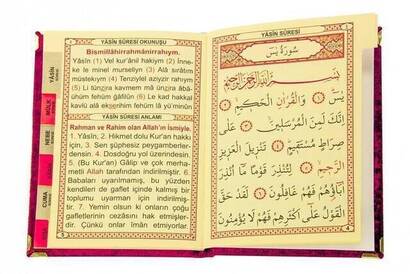 YÂSÎN SÛRESİ OKUNUŞU
Bismillâhirrahmânirrahıym.
Yâsîn (1) Vel kur'ânil hakiym (2) İnne-
ke le minel murseliyn (3) Alâ sırâtım
müstekıym (4) Tenziylel aziyzir rahıym
(5) Li tünzira kavmem mâ ünzira âbâ-
ühüm fehüm ğâfilûn (6) Le kad hakkal
kavlü alâ ekserihim fehüm lâ yü'minûn
YÂSÎN SÛRESİ ANLAMI
Rahman ve Rahim olan Allah'ın İsmiyle.
1. Yâsîn, 2. Hikmet dolu Kur'an hakkı
için, 3. Sen şüphesiz peygamberler-
densin. 4. Dosdoğru yol üzerindesin.
5. (Bu Kur'an) Gâlip ve çok merha-
metli Allah tarafından indirilmiştir. 6.
Babaları uyarılmamış, bu yüzden
kendileri de gaflet içinde kalmış bir
toplumu uyarman için indirilmiştir.
7. Yemin olsun ki onların çoğu
gafletlerinin cezâsını hak etmişler-
dir. Çünkü onlar îman etmiyorlar.
YÂSÎN
MÜLK
NEBE
CUMA
YÂSÎN SÛRESİ
سُورَةُ يٰسٓ
بِسْمِ اللّٰهِ الرَّحْمٰنِ الرَّحِيمِ
يٰسٓ ﴿١﴾ وَالْقُرْاٰنِ الْحَكِيمِ ﴿٢﴾
اِنَّكَ لَمِنَ الْمُرْسَلِينَ ﴿٣﴾ عَلٰى
صِرَاطٍ مُسْتَقِيمٍ ﴿٤﴾ تَنْزِيلَ الْعَزِيزِ
الرَّحِيمِ ﴿٥﴾ لِتُنْذِرَ قَوْمًا مَٓا اُنْذِرَ
اٰبَٓاؤُهُمْ فَهُمْ غَافِلُونَ ﴿٦﴾ لَقَدْ حَقَّ
الْقَوْلُ عَلٰٓى اَكْثَرِهِمْ فَهُمْ لَا يُؤْمِنُونَ